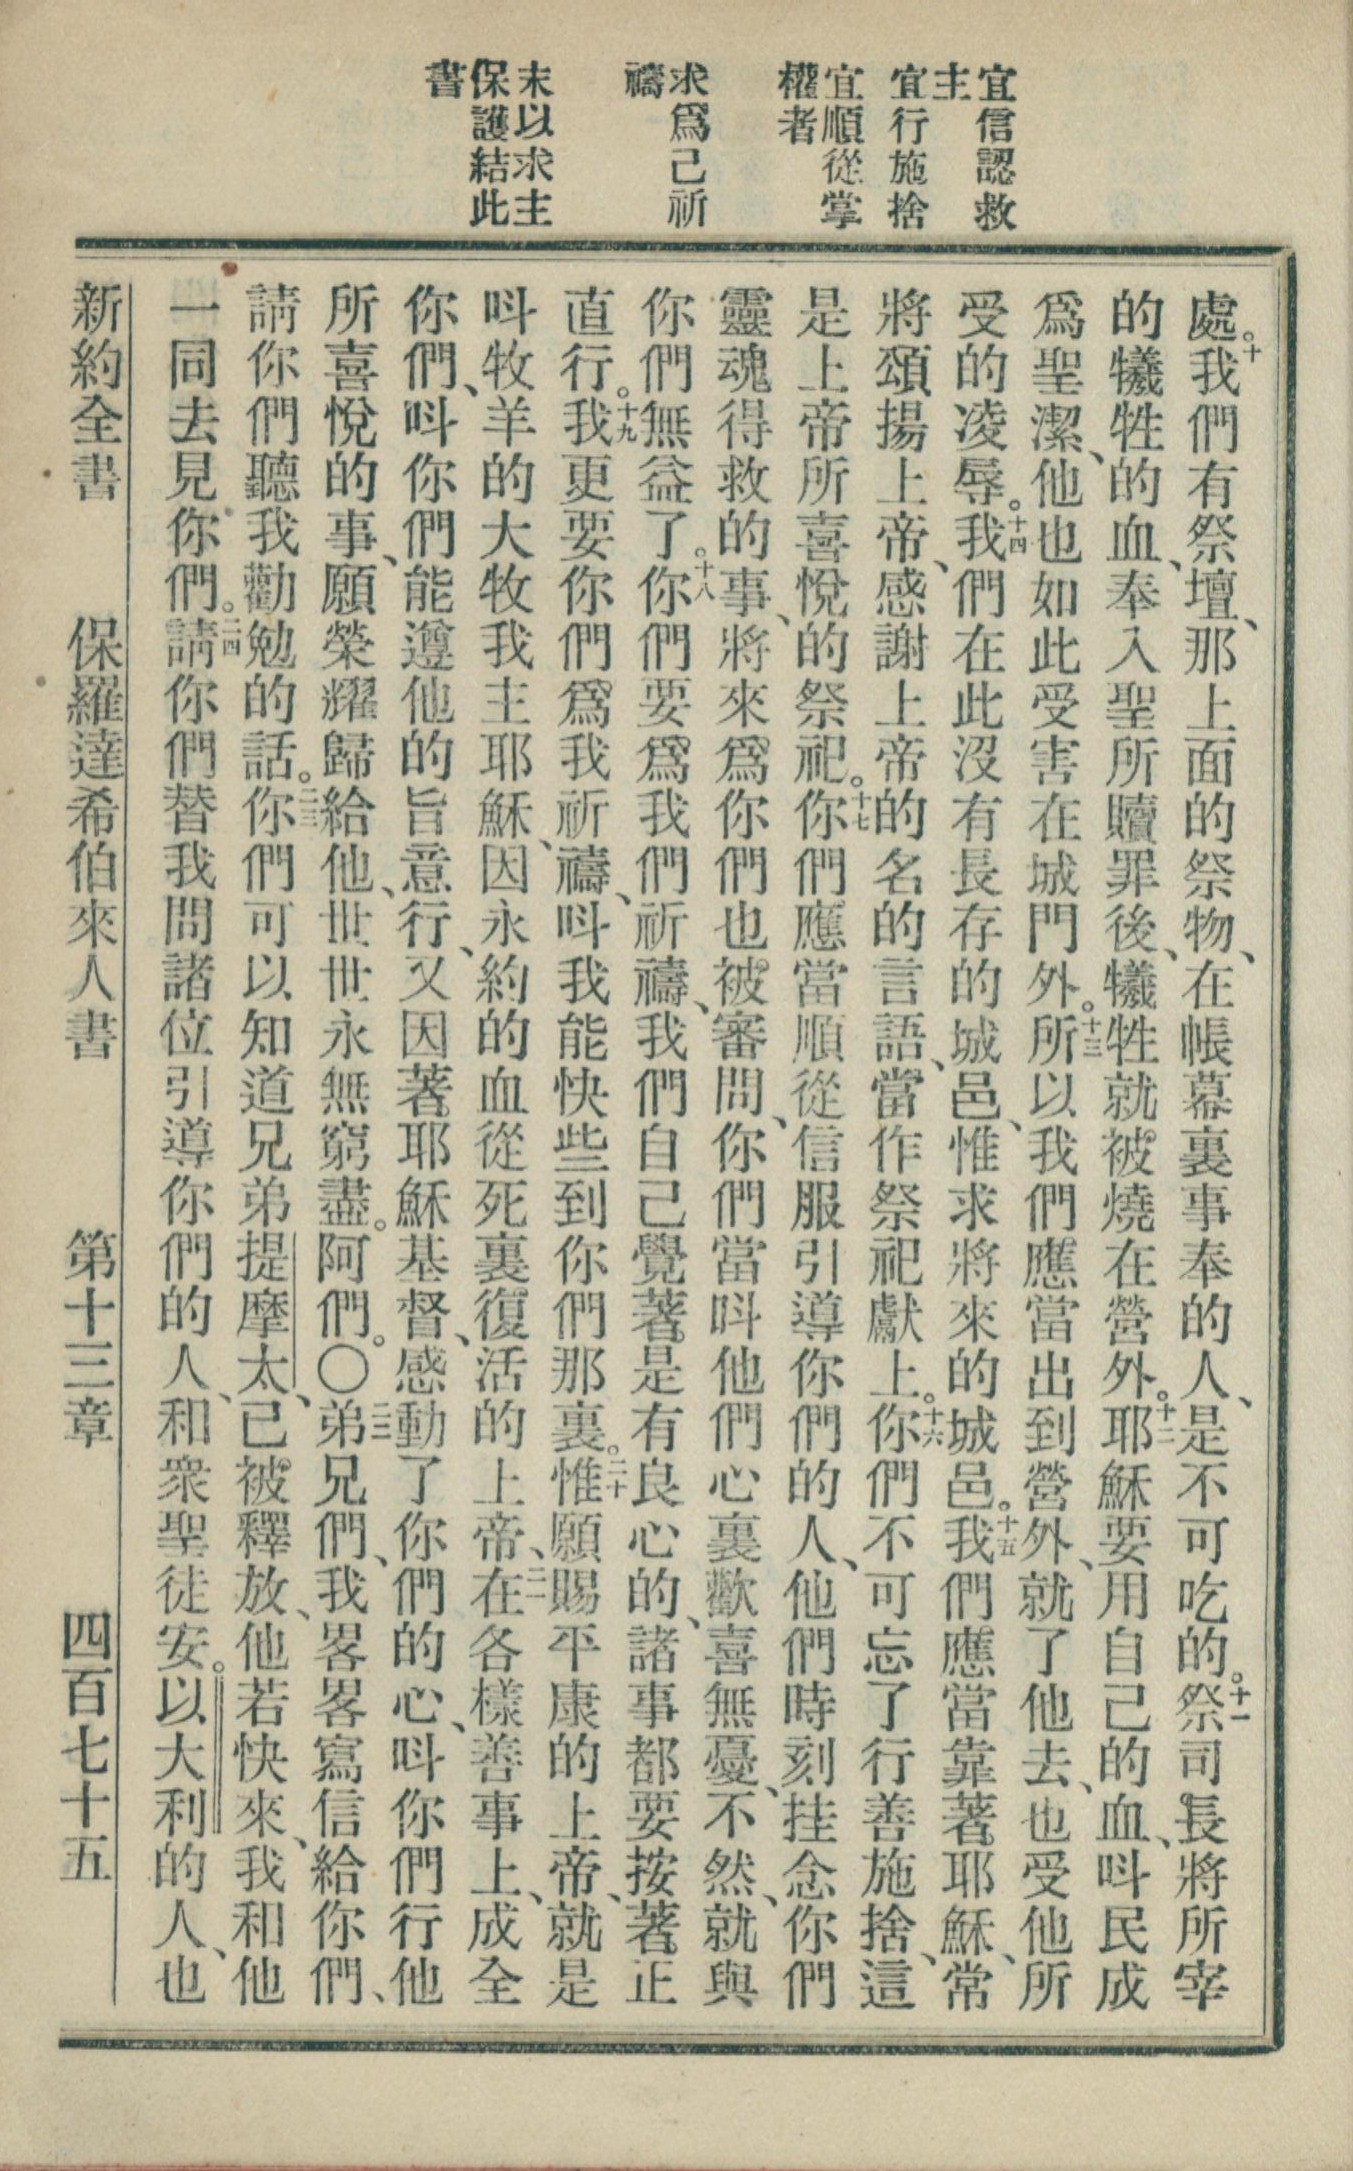 宜信認救
主
宜行施捨
宜順從掌
權者
求爲己祈
禱
末以求主
保護結此
書
處。十我們有祭壇、那上面的祭物、在帳幕裏事奉的人、是不可吃的。十一祭司長將所宰
的犧牲的血、奉入聖所贖罪後、犧牲就被燒在營外。十二耶穌要用自己的血、呌民成
爲聖潔、他也如此受害在城門外。十三所以我們應當出到營外、就了他去、也受他所
受的凌辱。十四我們在此沒有長存的城邑、惟求將來的城邑。十五我們應當靠著耶穌、常
將頌揚上帝、感謝上帝的名的言語、當作祭祀獻上。十六你們不可忘了行善施捨、這
是上帝所喜悅的祭祀。十七你們應當順從信服引導你們的人、他們時刻挂念你們
靈魂得救的事、將來爲你們也被審問、你們當呌他們心裏歡喜無憂、不然、就與
你們無益了。十八你們要爲我們祈禱、我們自己覺著是有良心的、諸事都要按著正
直行。十九我更要你們爲我祈禱、呌我能快些到你們那裏。二十惟願賜平康的上帝、就是
呌牧羊的大牧我主耶穌、因永約的血從死裏復活的上帝、二一在各樣善事上、成全
你們、呌你們能遵他的旨意行、又因著耶穌基督、感動了你們的心、呌你們行他
所喜悅的事、願榮耀歸給他、世世永無窮盡。阿們。〇二二弟兄們、我畧畧寫信給你們、
請你們聽我勸勉的話。二三你們可以知道兄弟提摩太、已被釋放、他若快來、我和他
一同去見你們。二四請你們替我問諸位引導你們的人、和衆聖徒安。以大利的人、也
新約全書　保羅達希伯來人書　第十三章　四百七十五